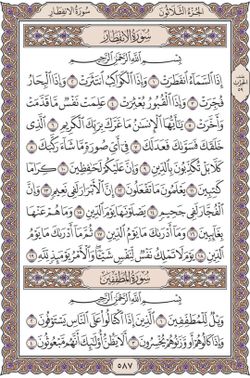 سُورَةُ الِانفِطَارِ الجُزْءُ الثَّلَاثُونَ
سُورَةُ الِانفِطَارِ
بِسْمِ اللَّهِ الرَّحْمَٰنِ الرَّحِيمِ
إِذَا السَّمَاءُ انفَطَرَتْ ١ وَإِذَا الْكَوَاكِبُ انتَثَرَتْ ٢ وَإِذَا الْبِحَارُ
فُجِّرَتْ ٣ وَإِذَا الْقُبُورُ بُعْثِرَتْ ٤ عَلِمَتْ نَفْسٌ مَّا قَدَّمَتْ
وَأَخَّرَتْ ٥ يَا أَيُّهَا الْإِنسَانُ مَا غَرَّكَ بِرَبِّكَ الْكَرِيمِ ٦ الَّذِي
خَلَقَكَ فَسَوَّاكَ فَعَدَلَكَ ٧ فِي أَيِّ صُورَةٍ مَّا شَاءَ رَكَّبَكَ ٨
كَلَّا بَلْ تُكَذِّبُونَ بِالدِّينِ ٩ وَإِنَّ عَلَيْكُمْ لَحَافِظِينَ ١٠ كِرَامًا
كَاتِبِينَ ١١ يَعْلَمُونَ مَا تَفْعَلُونَ ١٢ إِنَّ الْأَبْرَارَ لَفِي نَعِيمٍ ١٣ وَإِنَّ
الْفُجَّارَ لَفِي جَحِيمٍ ١٤ يَصْلَوْنَهَا يَوْمَ الدِّينِ ١٥ وَمَا هُمْ عَنْهَا
بِغَائِبِينَ ١٦ وَمَا أَدْرَاكَ مَا يَوْمُ الدِّينِ ١٧ ثُمَّ مَا أَدْرَاكَ مَا يَوْمُ
الدِّينِ ١٨ يَوْمَ لَا تَمْلِكُ نَفْسٌ لِّنَفْسٍ شَيْئًا وَالْأَمْرُ يَوْمَئِذٍ لِّلَّهِ ١٩
سُورَةُ المُطَفِّفِينَ
بِسْمِ اللَّهِ الرَّحْمَٰنِ الرَّحِيمِ
وَيْلٌ لِّلْمُطَفِّفِينَ ١ الَّذِينَ إِذَا اكْتَالُوا عَلَى النَّاسِ يَسْتَوْفُونَ ٢
وَإِذَا كَالُوهُمْ أَو وَّزَنُوهُمْ يُخْسِرُونَ ٣ أَلَا يَظُنُّ أُولَٰئِكَ أَنَّهُم مَّبْعُوثُونَ ٤
٥٨٧